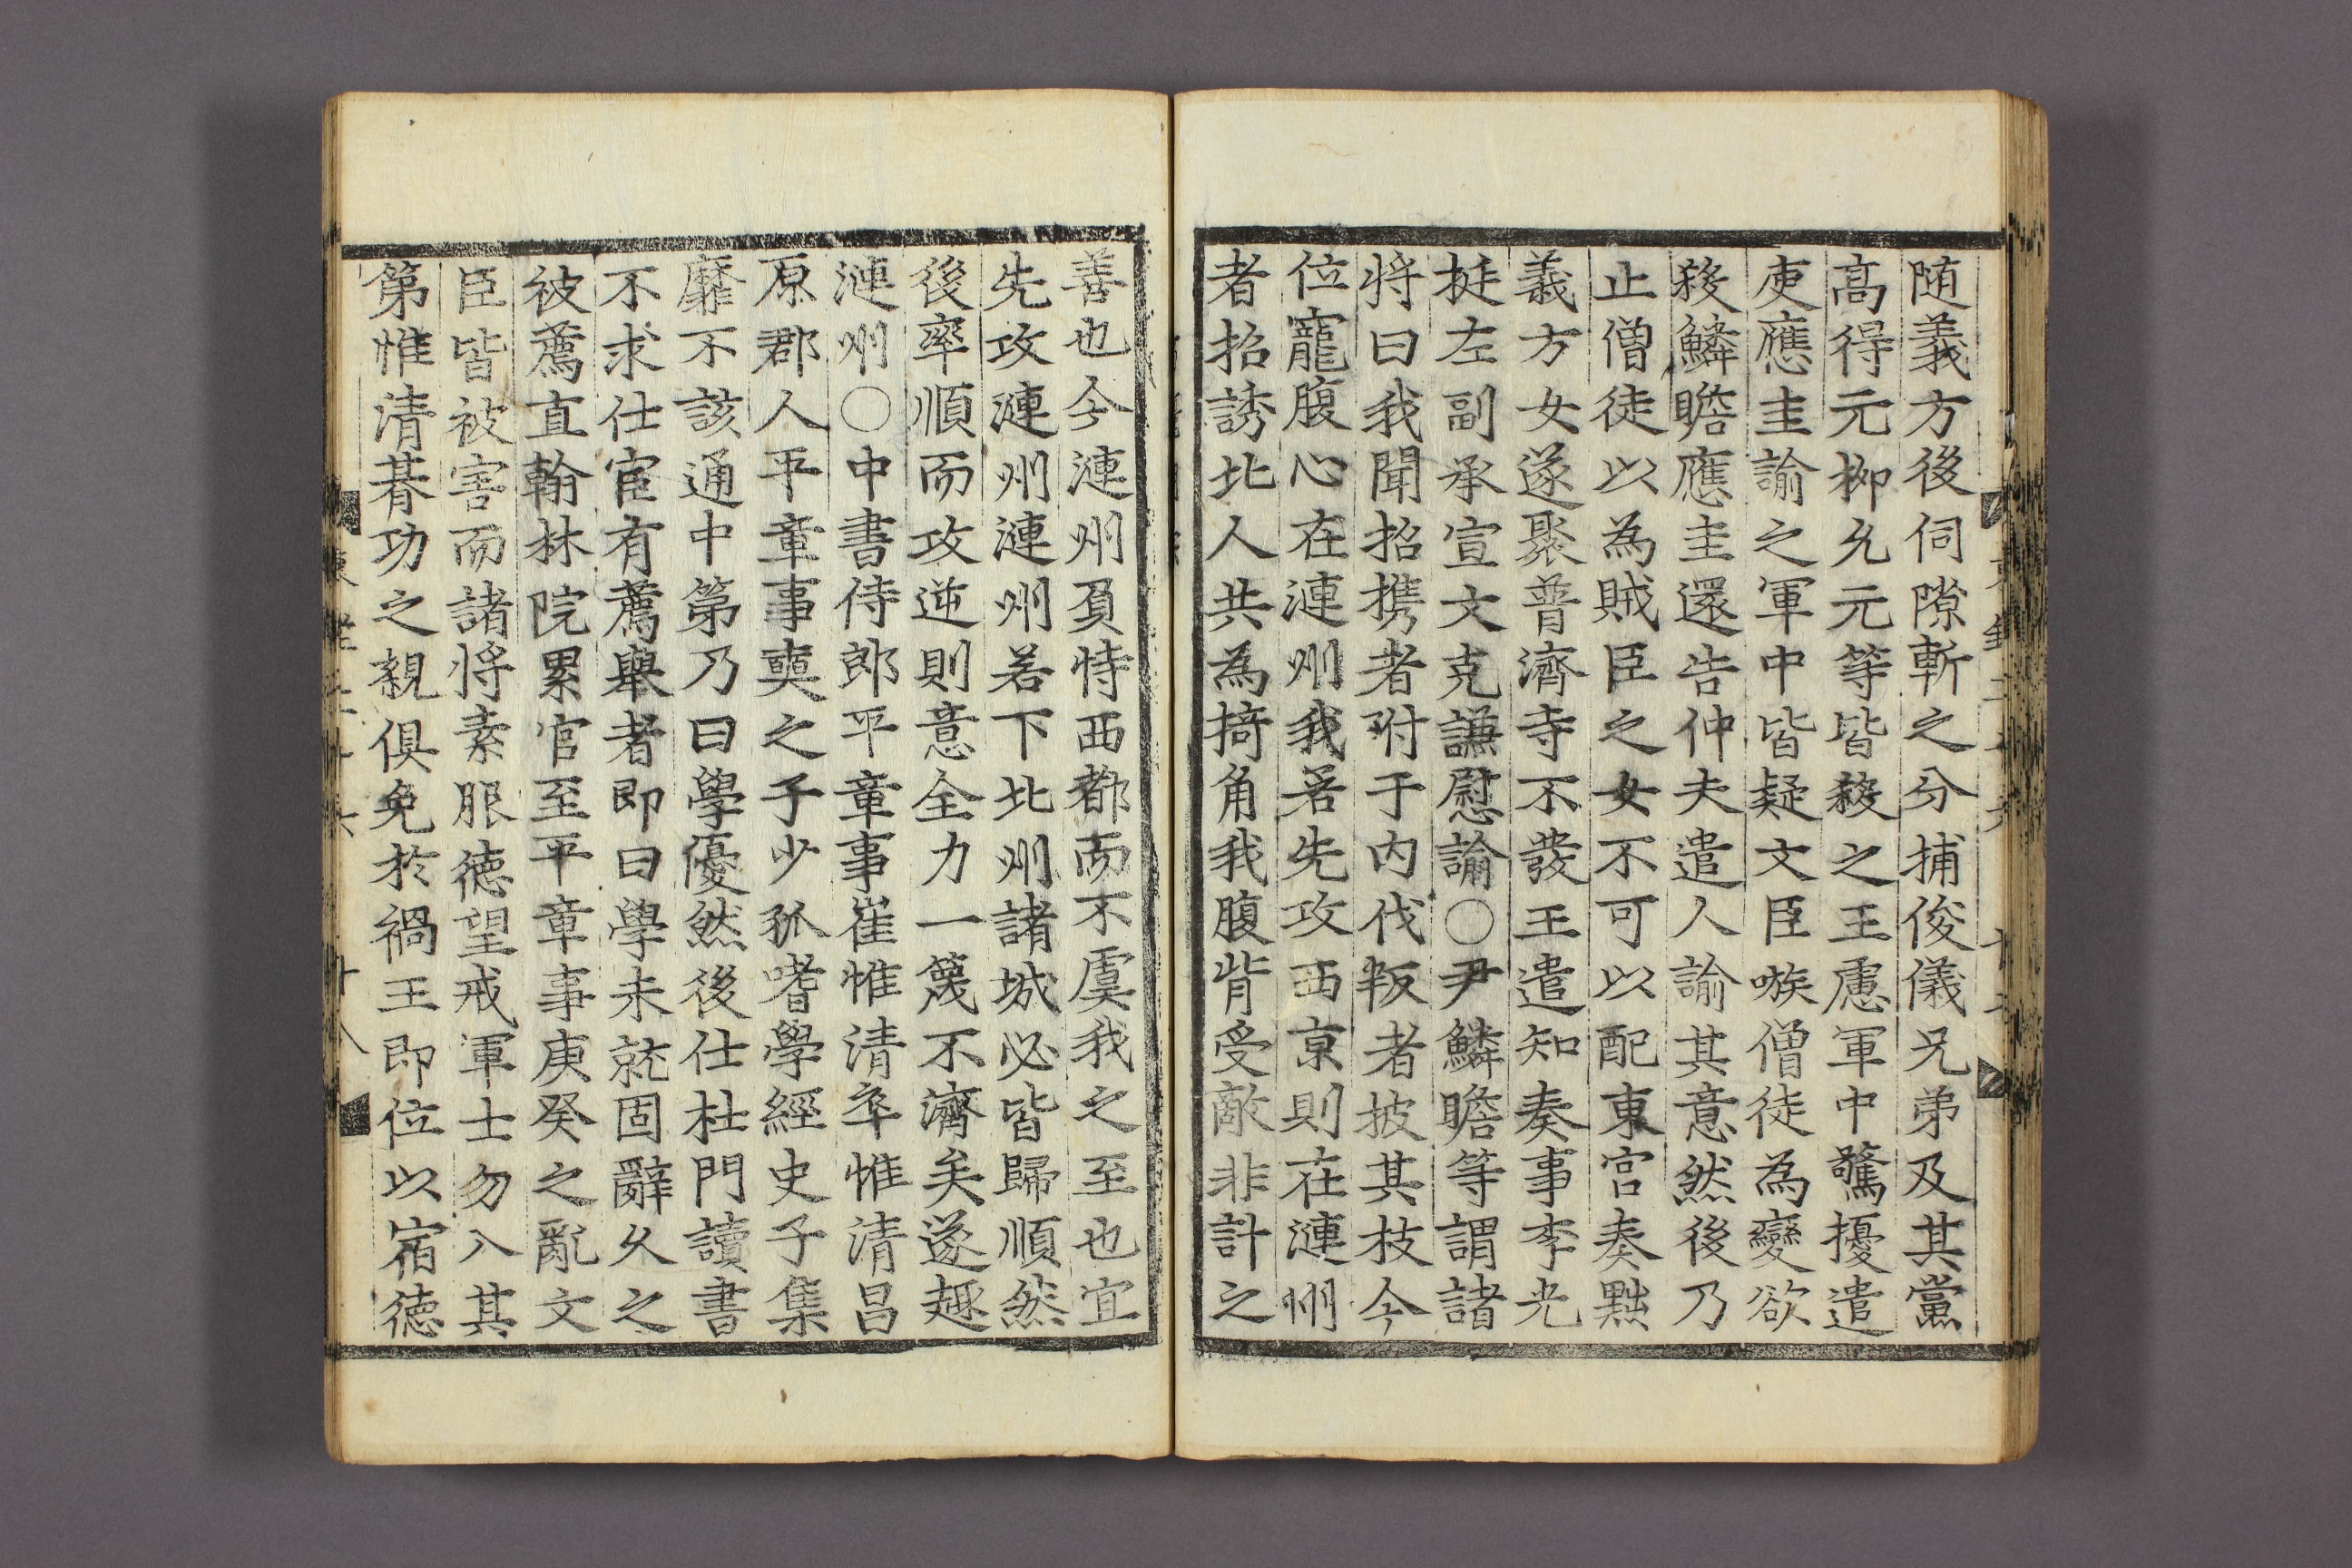 随義方後伺隙斬之分捕俊儀兄弟及其黨
高得元柳允元等皆殺之王慮軍中驚擾遣
庾應圭諭之軍中皆疑文臣嗾僧徒為變欲
殺鱗瞻應圭還告仲夫遣人諭其意然後乃
止僧徒以為賊臣之女不可以配東宮奏黜
義方女遂聚普濟寺不發王遣知奏事李光
挺左副承宣文克謙慰諭○尹鱗瞻等謂諸
将曰我聞招携者附于内伐叛者披其枝今
位寵腹心在漣州我若先攻西京則在漣州
者招誘北人共為掎角我腹背受敵非計之
善也今漣州負恃西都而不虞我之至也宜
先攻漣州漣州若下北州諸城必皆歸順然
後率順而攻逆則意全力一篾不濟矣遂趣
漣州○中書侍郎平章事崔惟清卒惟清昌
原郡人平章事奭之子少孤嗜學經史子集
靡不該通中第乃曰學優然後仕杜門讀書
不求仕宦有薦舉者即曰學未就固辭久之
被薦直翰林院累官至平章事庚癸之亂文
臣皆被害而諸将素服徳望戒軍士勿入其
第惟清朞功之親俱免於禍王即位以宿徳
十八